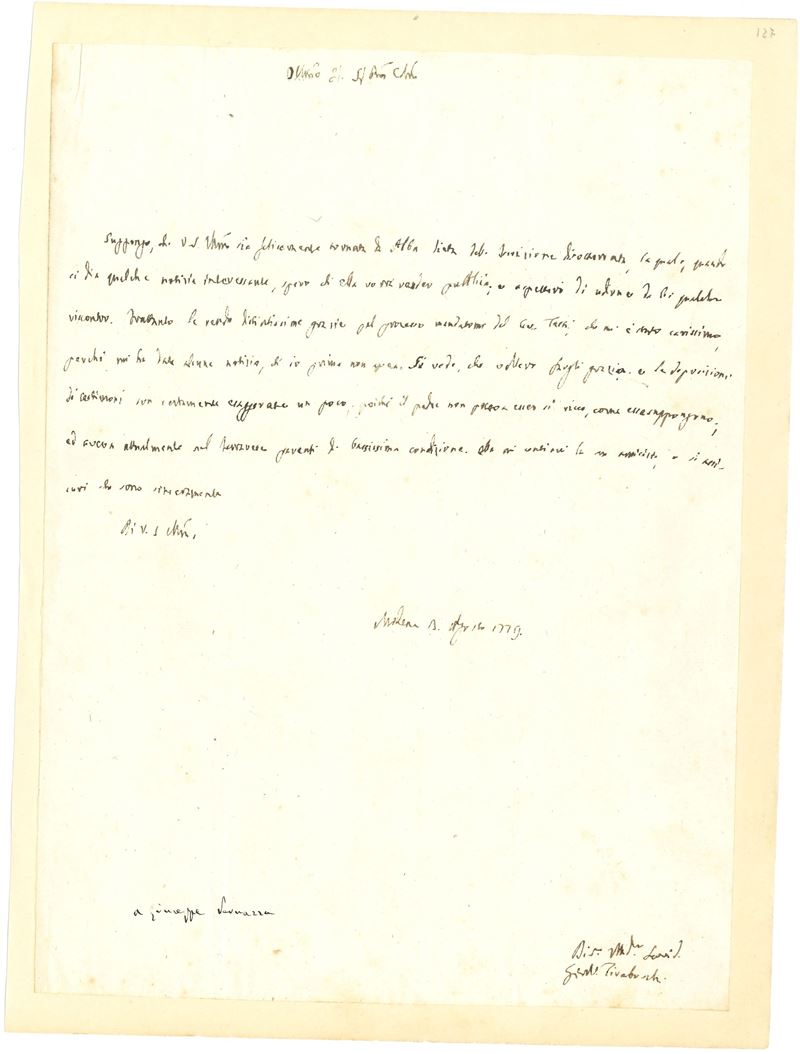 127
Suppongo, che V. S. Illma sia felicemente tornata da Alba lieta della Iscrizione dissotterrata, la quale, quando
ci dia qualche notizia interessante, spero ch' ella vorrà render pubblica; e aspetterò di udirne da lei qualche
riscontro. Frattanto le rendo distintissime grazie pel processo mandatomi del Cav. che mi è stato carissimo,
perchè mi ha date alcune notizie, ch' io prima non avea. Si vede, che e le deposizioni
di testimoni son certamente esaggerate un poco, poichè il padre non poteva esser sì ricco, come essi suppongono,
ed aveva attualmente nel parenti di bassissima condizione. Ella mi continui la sua amicizia, e si assi-
curi che sono sinceramente
Di V. S. Illma,
Modena 13. Aprile 1779.
a Giuseppe Vernazza
Div. Obb. Servid.
Girol. Tiraboschi